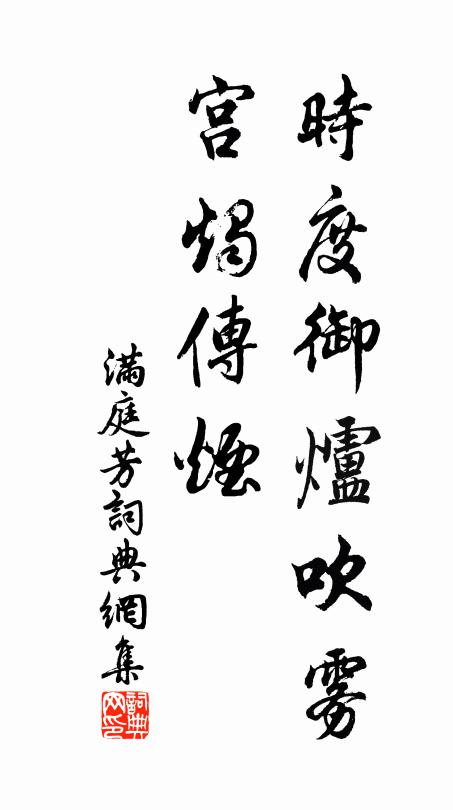 時度御爐吹霧
宮燭傳煙
滿庭芳詞典網集
詞典网印